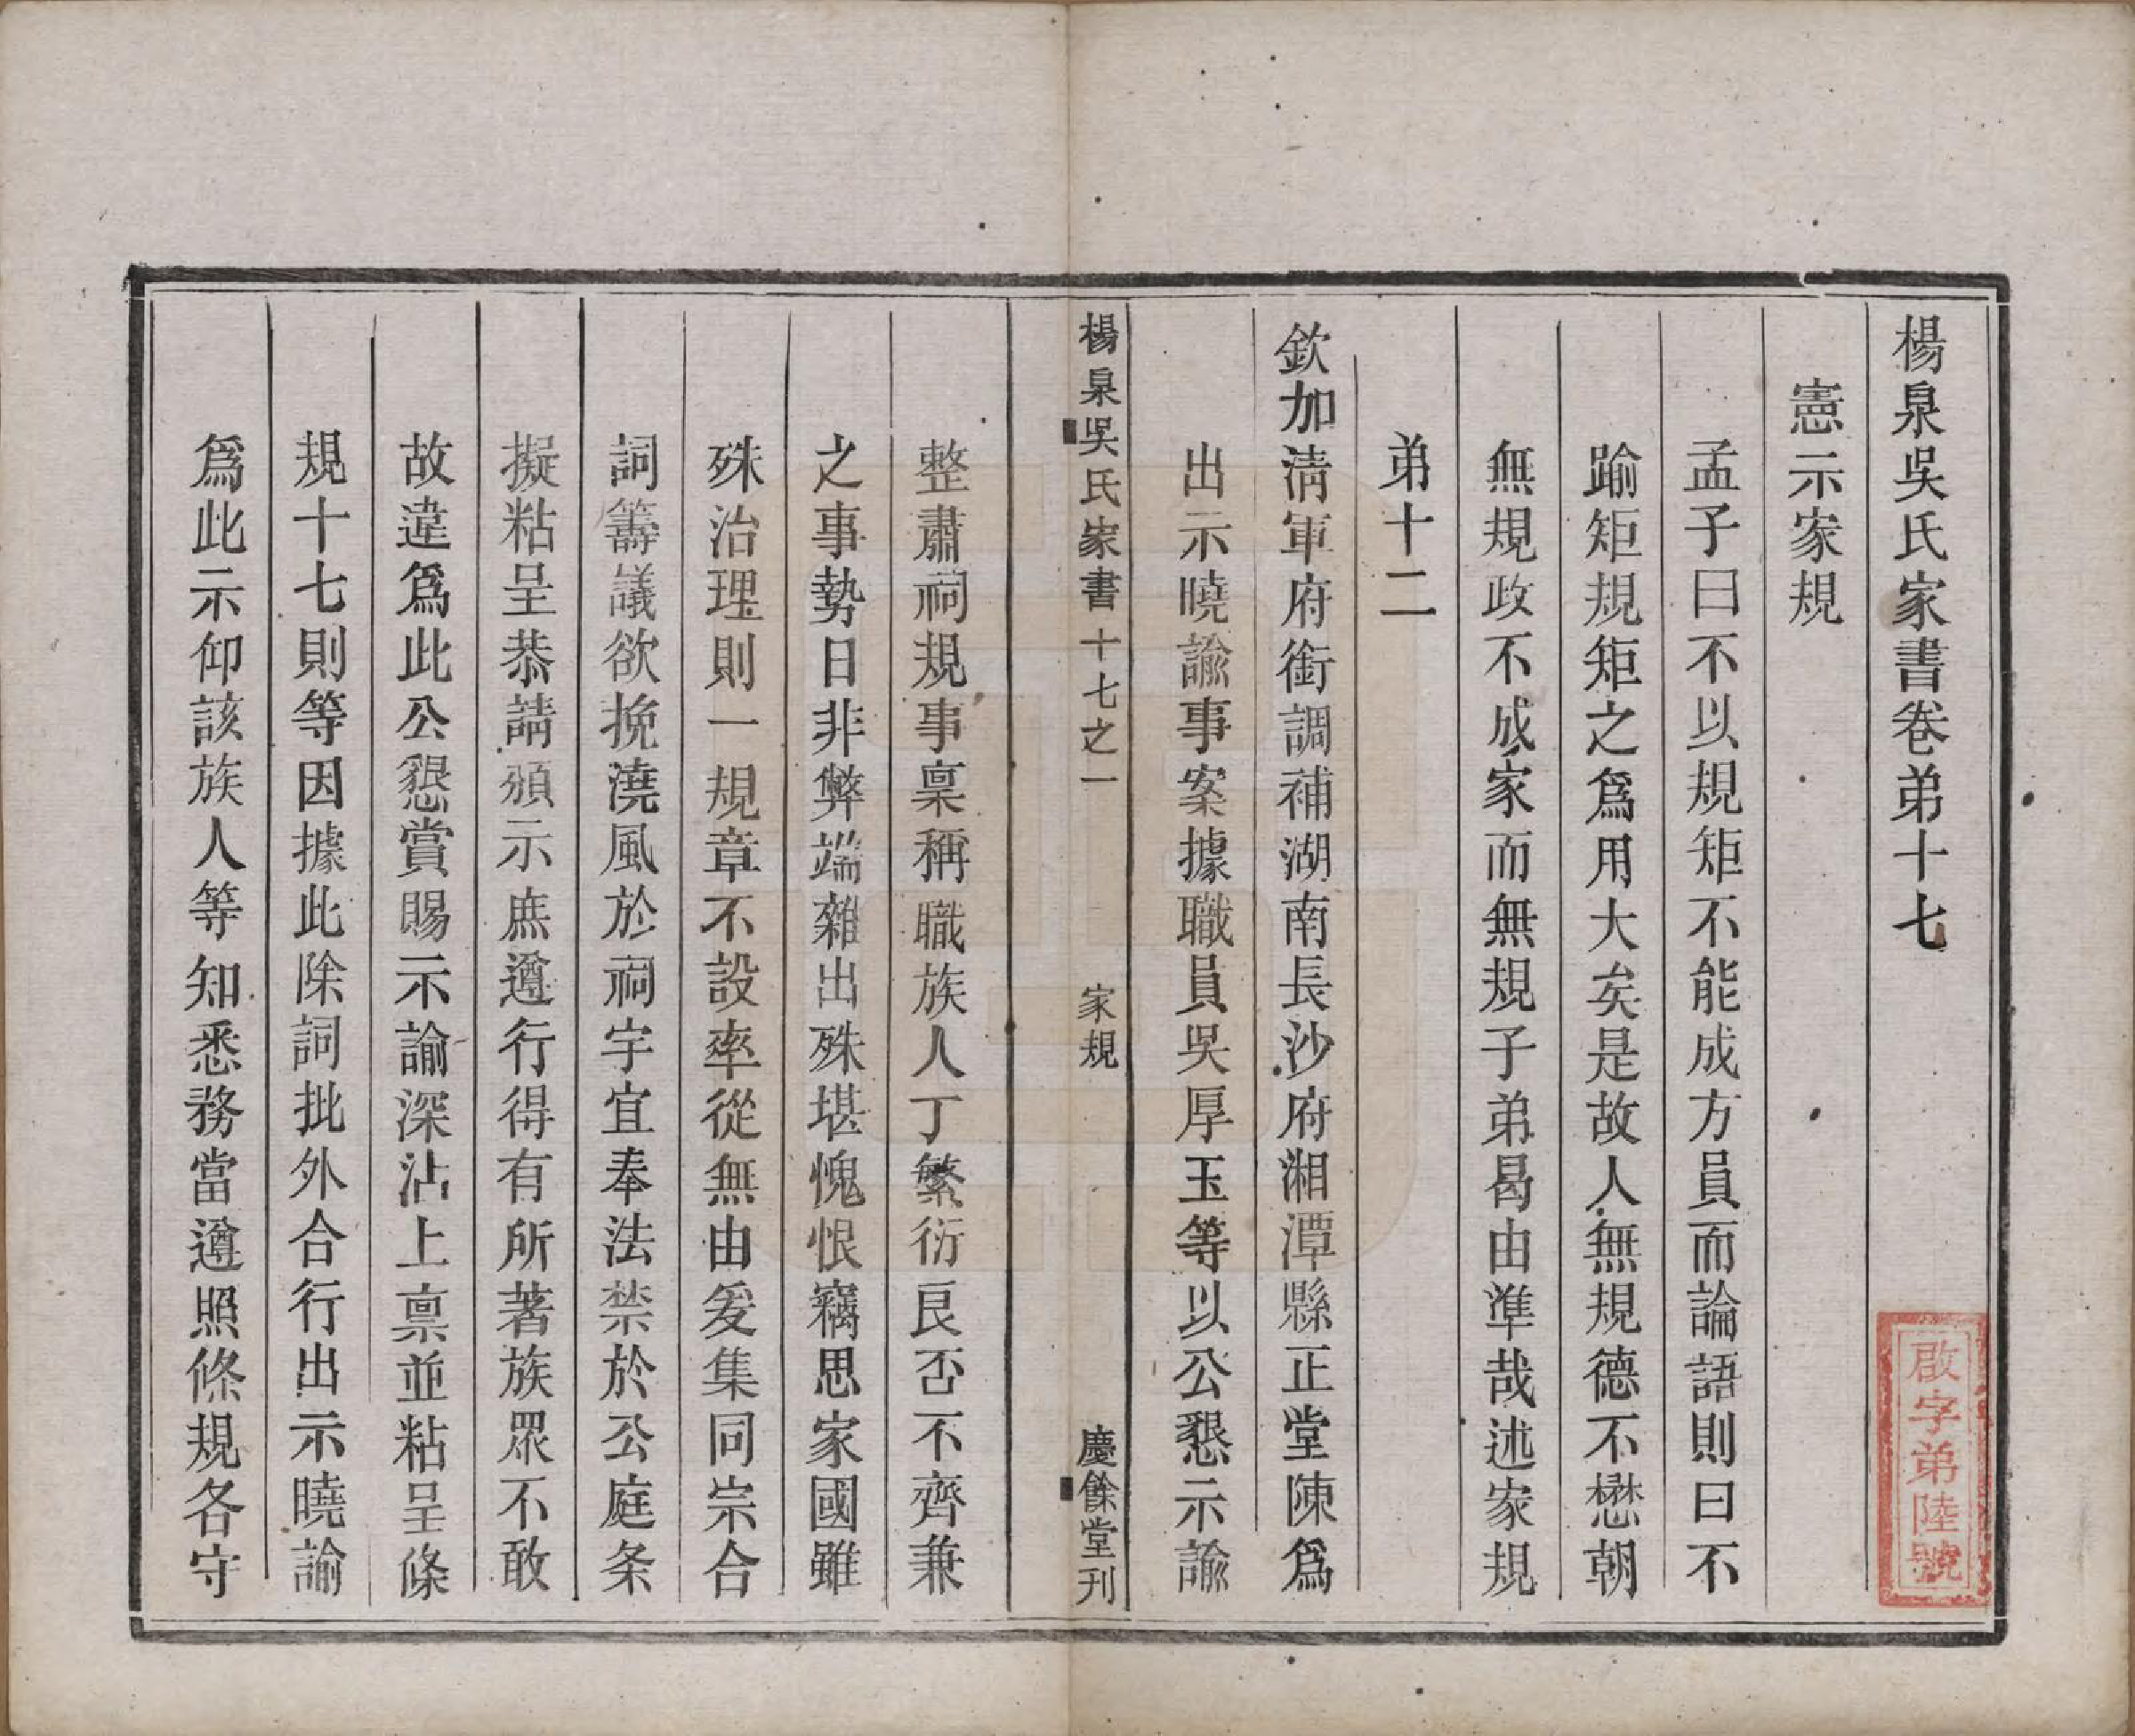 楊泉吳氏家書卷弟十七
憲示家規
孟子曰不以規矩不能成方員而論語則曰不
踰矩規矩之爲用大矣是故人無規德不懋朝
無規政不成家而無規子弟曷由準哉述家規
弟十二
欽加清軍府銜調補湖南長沙府湘潭縣正堂陳爲
出示曉諭事案據職員吳厚玉等以公懇示諭
楊泉吳氏家書十七之一
家規
慶餘堂刊
整肅祠規事稟稱職族人丁繁衍良否不齊兼
之事勢日非弊端雜出殊堪愧恨竊思家國雖
殊治理則一規章不設率從無由爰集同宗合
詞籌議欲挽澆風於祠宇宜奉法禁於公庭条
擬粘呈恭請頒示庶遵行得有所著族眾不敢
故違爲此公懇賞賜示諭深沾上稟並粘呈條
規十七則等因據此除詞批外合行出示曉諭
爲此示仰該族人等知悉務當遵照條規各守
啟字弟陸號